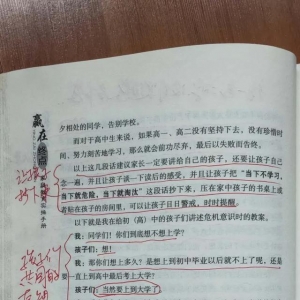 夕相处的同学，告别学校。
而对于高中生来说，如果高一、高二没有坚持下去，没有珍惜时
间、努力刻苦地学习，那么就会前功尽弃，最后以失败而告终。
以上这几段话建议家长一定要讲给自己的孩子，还要让孩子自己
念一遍，并且让孩子谈一下读后的感受，并且让孩子把“当下不学习，
当下就危险，当下就淘汰”这段话抄下来，压在家中孩子的书桌上或
者贴在孩子的房间里，可以让孩子日日警戒，时时提醒。
以下就是我在给初（高）中的孩子们讲述危机意识时的教案。
我：同学们！你们到底想不想上学？
孩子们：想！
我：那你们想上多久？是想上到初中毕业以后就不上了呢，还是
要一直上到高中最后考上大学？
孩子们：当然要上到大学了！
赢在
让孩子
抄下
孩子们